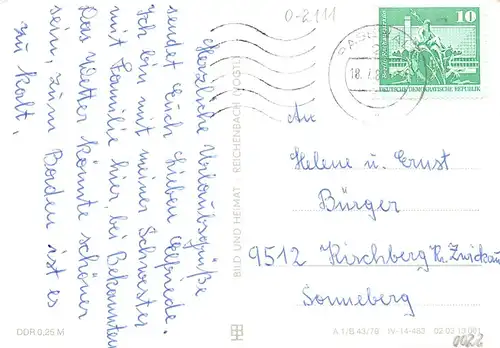 Herzliche Urlaubsgrüße
sendet Euch Lieben Elfriede.
Ich bin mit meiner Schwester
mit Familie hier, bei Bekannten
Das Wetter könnte schöner
sein, zum Baden ist es
zu kalt.
0-2111
10
DEUTSCHE DEMOKRATISCHE REPUBLIK
An
Helene u. Ernst
Bürger
9512 Kirchberg Kr. Zwickau
Sonneberg
BILD UND HEIMAT REICHENBACH (VOGTL)
DDR 0,25 M
A 1/B 43/79 IV-14-483 02 02 10 061
0022